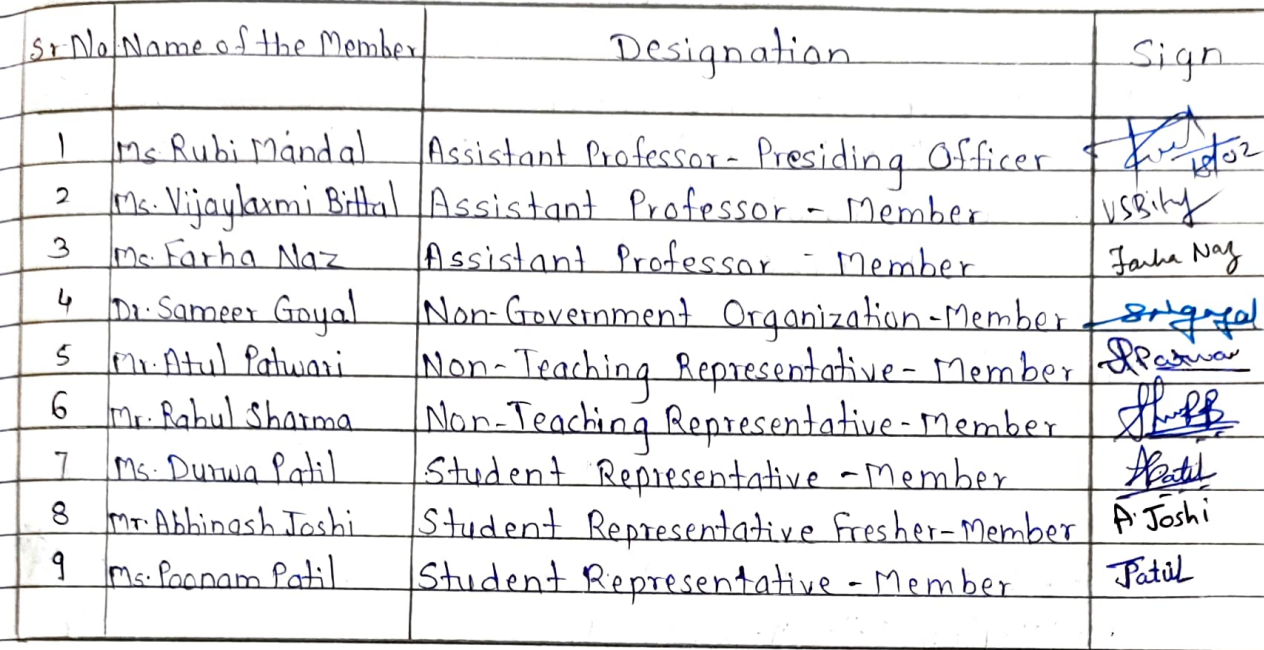 Sr.No Name of the Member Designation Sign
1 Ms Rubi Mandal Assistant Professor- Presiding Officer 18/02
2 Ms. Vijaylaxmi Bittal Assistant Professor - Member
3 Ms. Farha Naz Assistant Professor - Member Farha Naz
4 Dr. Sameer Goyal Non-Government Organization-Member
5 Mr. Atul Patwari Non-Teaching Representative- Member
6 Mr. Rahul Sharma Non-Teaching Representative-Member
7 Ms. Durwa Patil Student Representative -Member
8 Mr. Abhinash Joshi Student Representative Fresher-Member A. Joshi
9 Ms. Poonam Patil Student Representative - Member Patil